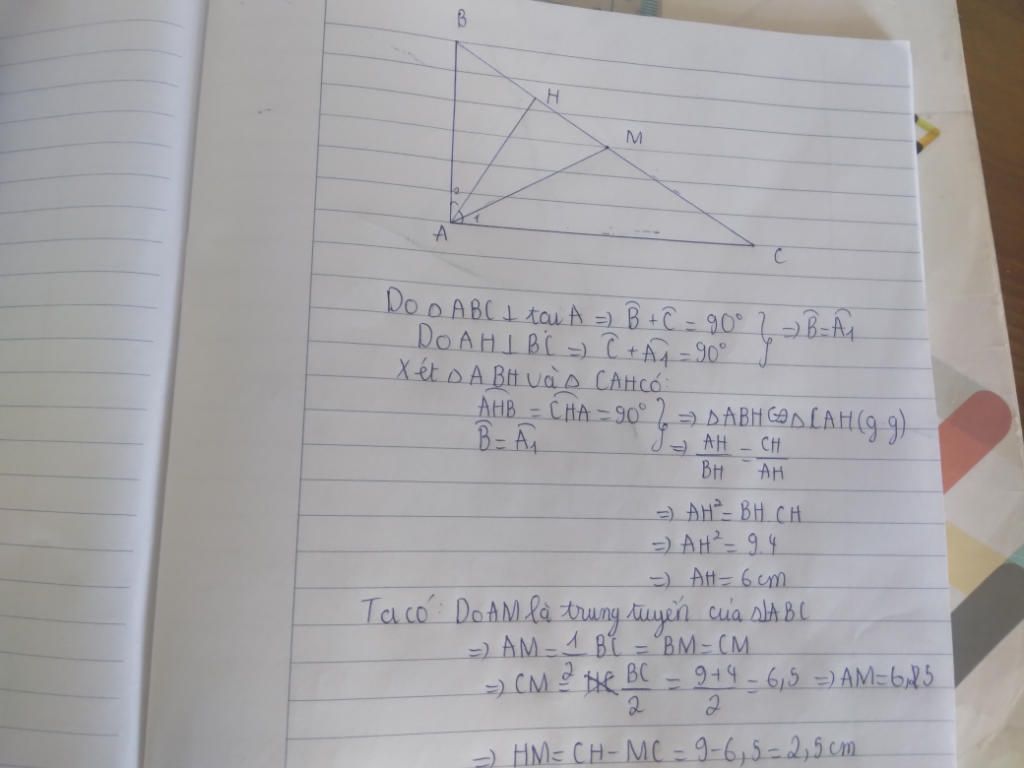 B
H
M
A
1
C
Do △ABC ⊥ tại A => B̂ + Ĉ = 90° } => B̂ = Â₁
Do AH ⊥ BC => Ĉ + Â₁ = 90°
Xét △ABH và △CAH có:
AHB = CHA = 90° } => △ABH ∽ △CAH (g g)
B̂ = Â₁
=> AH/BH = CH/AH
=> AH² = BH.CH
=> AH² = 9.4
=> AH = 6cm
Ta có: Do AM là trung tuyến của △ABC
=> AM = 1/2 BC = BM = CM
=> CM = BC/2 = 9+4/2 = 6,5 => AM = 6,5
=> HM = CH - MC = 9-6,5 = 2,5cm